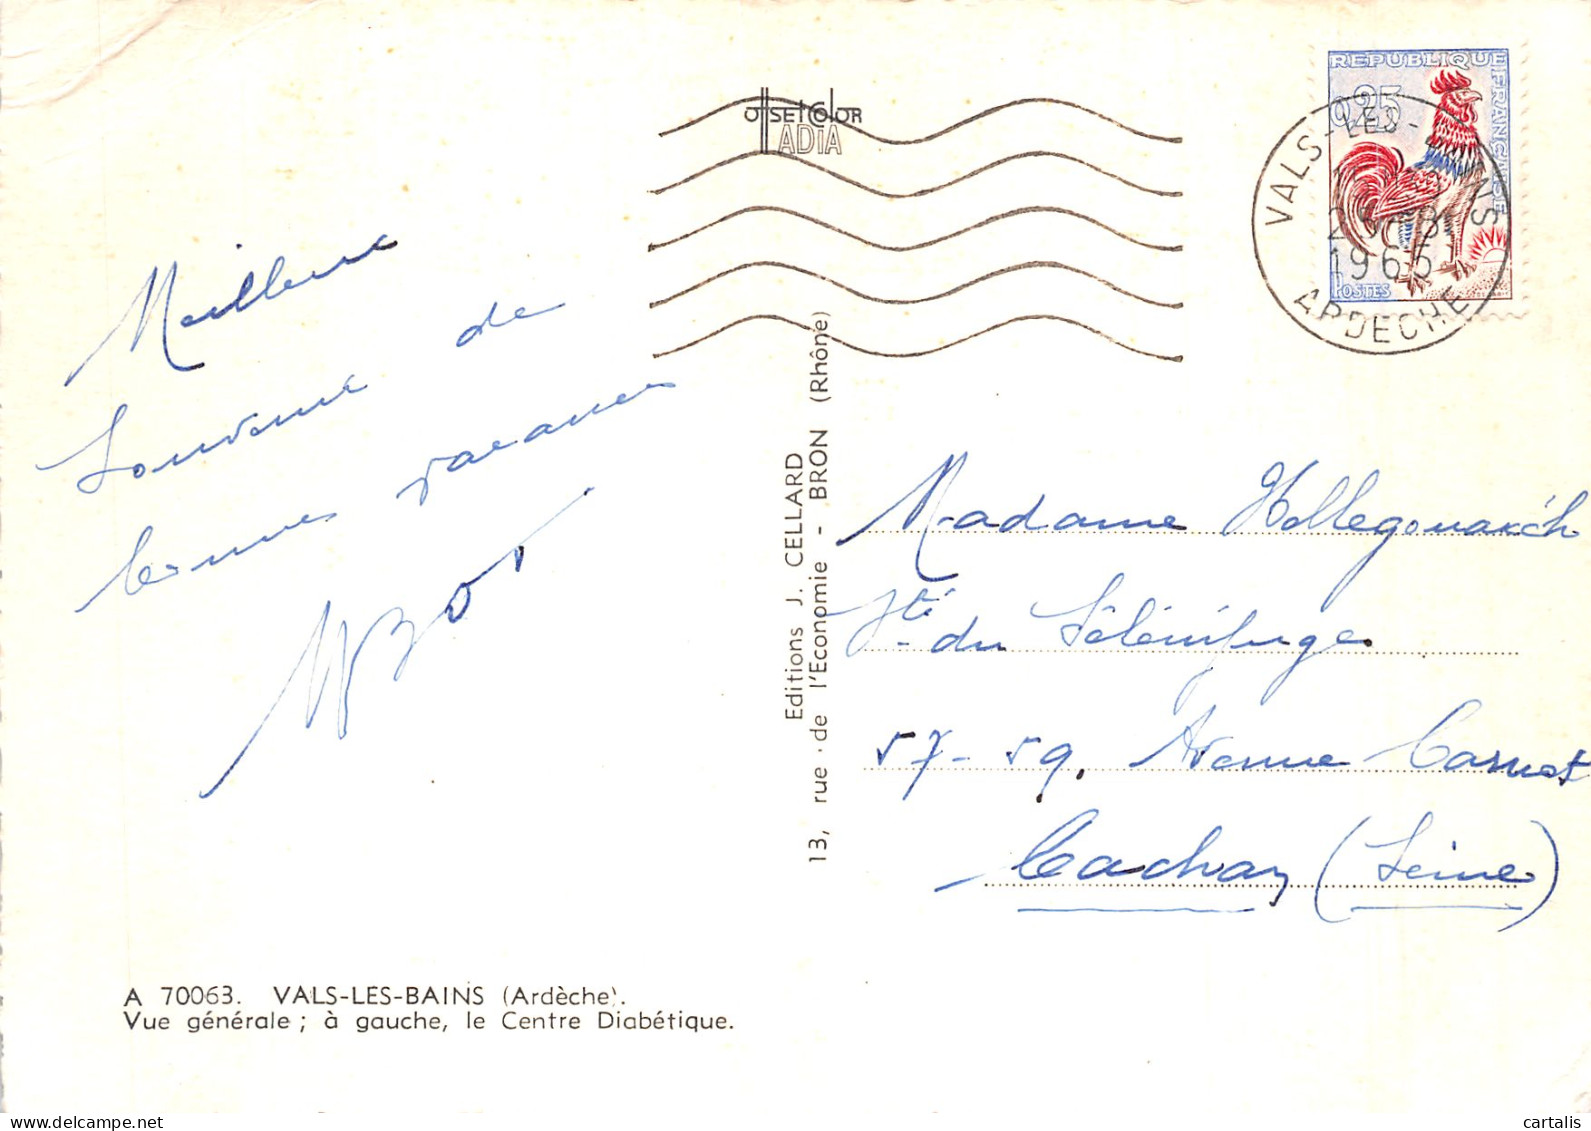 OffsetColor
ADIA
REPUBLIQUE
FRANÇAISE
0,25
POSTES
VALS-LES-BAINS
1965
ARDECHE
Meilleur
souvenir de
bonnes vacances
Editions J. CELLARD
13, rue de l'Economie - BRON (Rhône)
Madame
Sté du Sélénifuge
57-59, Avenue Carnot
Cachan (Seine)
A 70063. VALS-LES-BAINS (Ardèche).
Vue générale ; à gauche, le Centre Diabétique.
delcampe.net
cartalis